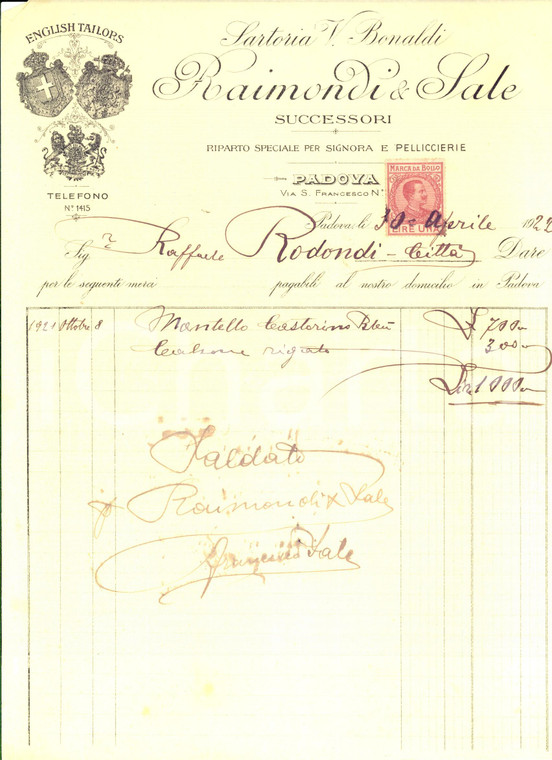 ENGLISH TAILORS
Sartoria V. Bonaldi
Raimondi & Sale
SUCCESSORI
RIPARTO SPECIALE PER SIGNORA E PELLICCIERIE
PADOVA
VIA S. FRANCESCO N.
TELEFONO
N.º 1415
MARCA DA BOLLO
LIRE UNA
Padova, li 30 Aprile 1922
Sig.r Raffaele Rodondi - Città Dare
per le seguente merci pagabili al nostro domicilio in Padova
1921 Ottobre 8 Mantello Castorino Bleu £ 700
Calzone rigato 300
Lire 1000
Saldato
p Raimondi & Sale
Sale